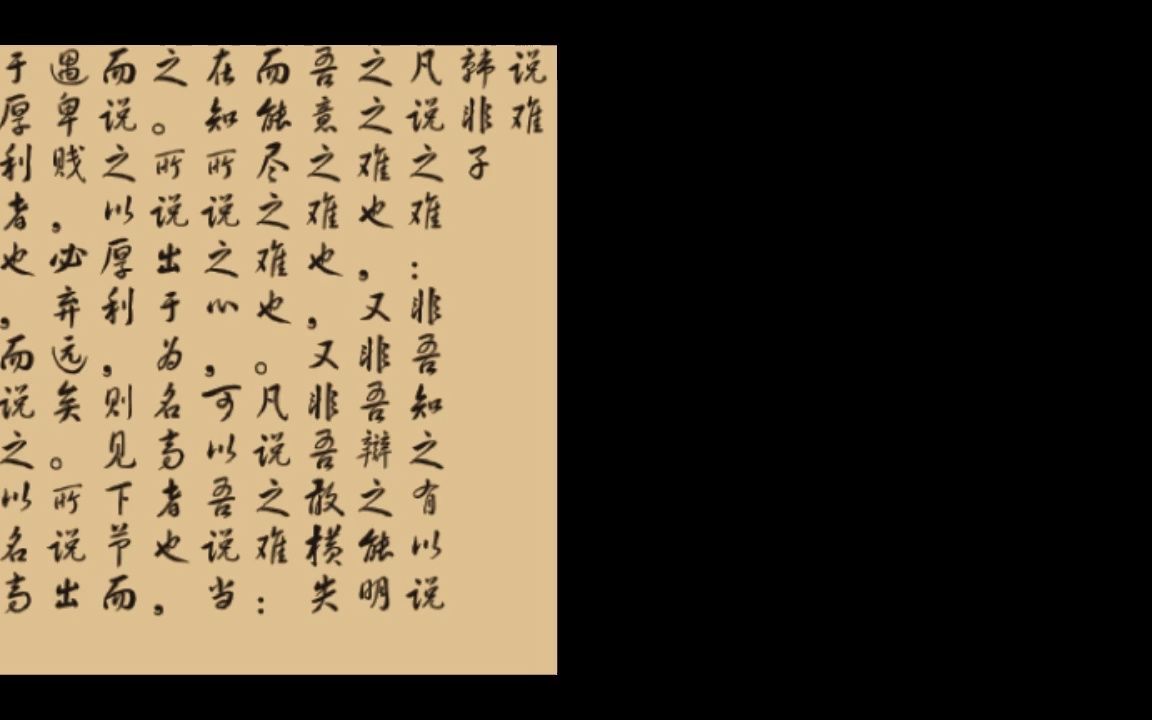 说难
韩非子
凡说之难：非吾知之有以说
之之难也，又非吾辩之能明
吾意之难也，又非吾敢横失
而能尽之难也。凡说之难：
在知所说之心，可以吾说当
之。所说出于为名高者也，
而说之以厚利，则见下节而
遇卑贱，必弃远矣。所说出
于厚利者也，而说之以名高